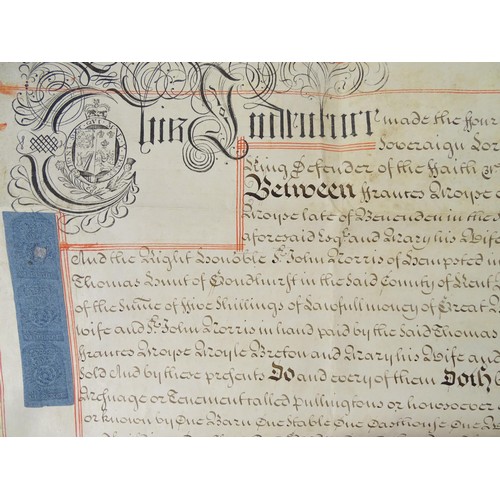 This Indenture made the Four
Soveraign Lor
King Defender of the Faith &c
Between Frances Moyse
Moyse late of Benenden in the
aforesaid Esqr. and Mary his Wife
And the Right Honoble Sr. John Norris of Hempsted in
Thomas Lount of Goudhurst in the Said County of Kent
of the Summe of Five Shillings of Lawfull money of Great
Wife and Sr. John Norris in hand paid by the Said Thomas
Frances Moyse Moyle Breton and Mary his Wife and
Sold And by these presents Do and every of them Doth
Messuage or Tenement called Pullingtons or howsoever
or known by One Barn One Stable One Oasthouse One